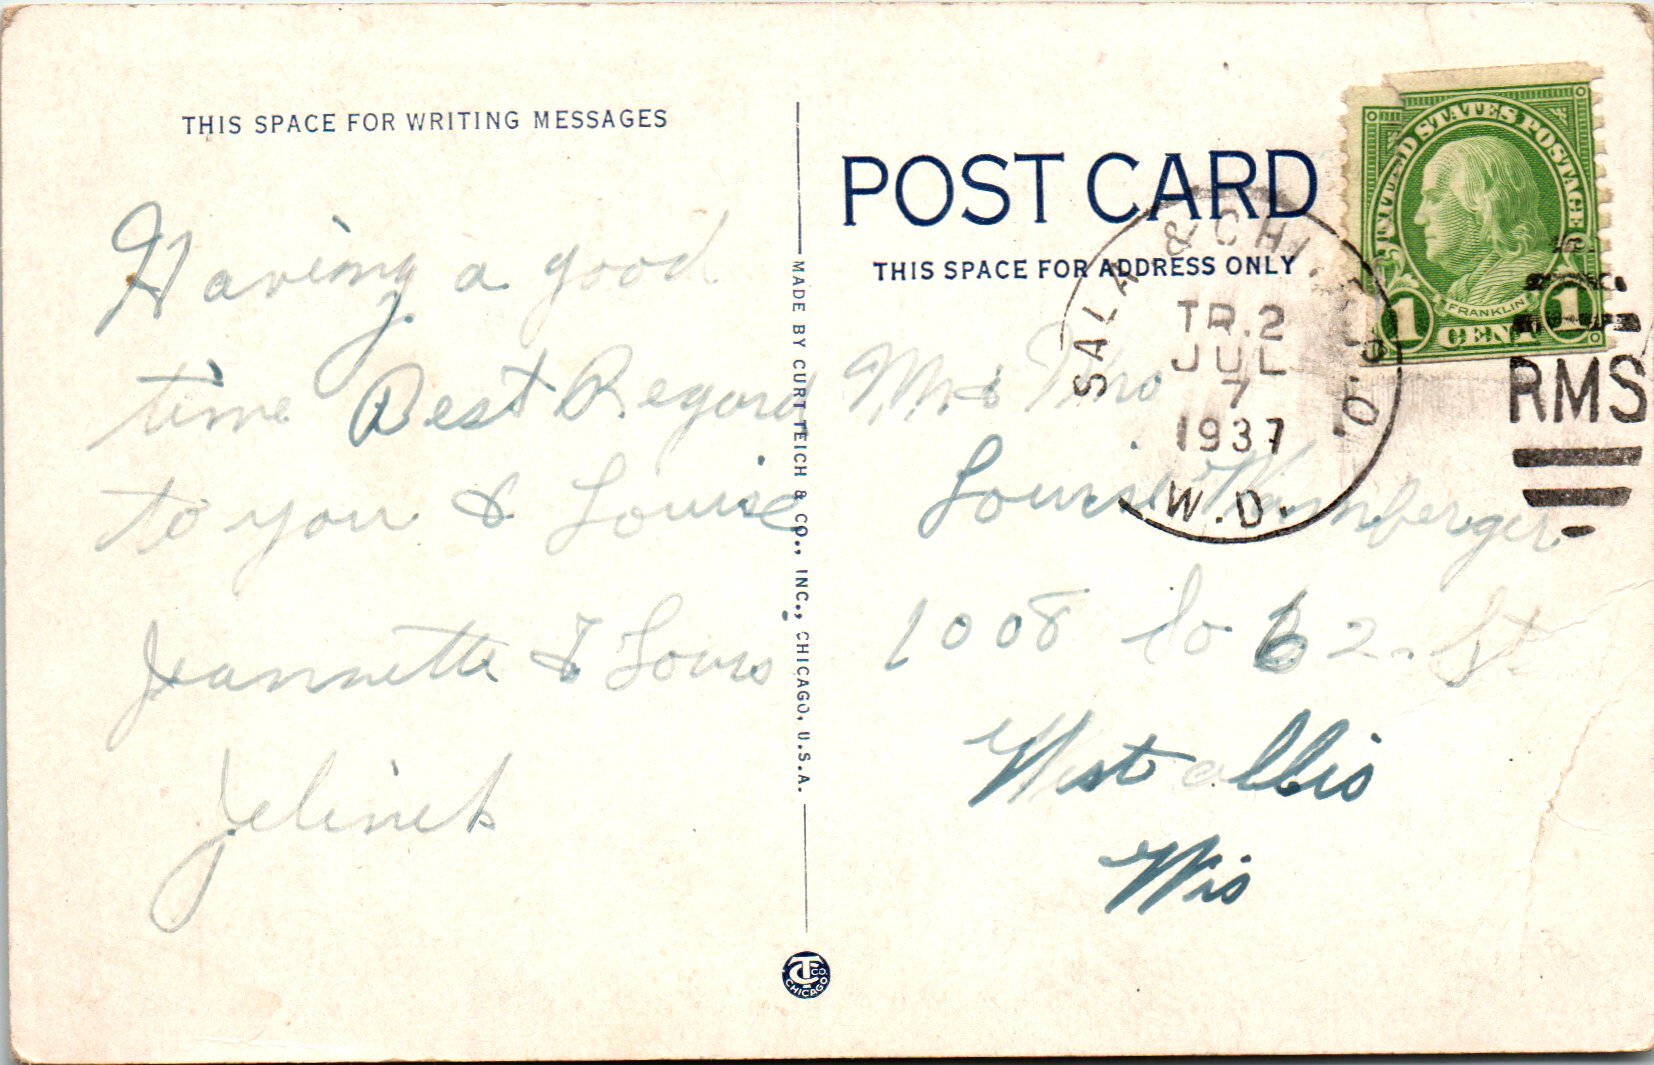 THIS SPACE FOR WRITING MESSAGES
Having a good
time Best Regard
to you & Louise
Jeannette & Louis
Jelinek
MADE BY CURT TEICH & CO., INC., CHICAGO, U.S.A.
CT CO.
CHICAGO
POST CARD
THIS SPACE FOR ADDRESS ONLY
UNITED STATES POSTAGE
FRANKLIN
1 CENT 1
SALA & CHI
TR.2
JUL
7
1937
W.D.
R.P.O.
RMS
Mr & Mrs
Louise
1008 So 62. St
West allis
Wis